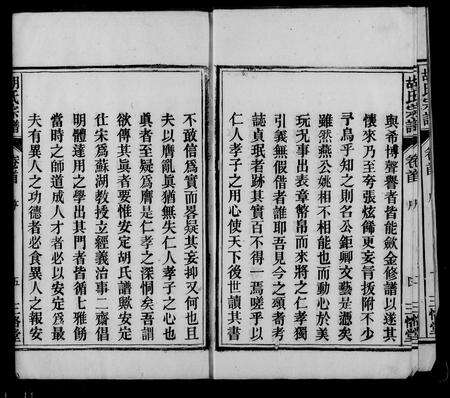 胡氏宗譜 卷首 序
輿希博聲譽者皆能歛金修譜以遂其
懷來乃至夸張炫餙更妄肯扳附不少
寻烏乎知之則名公鉅卿文藝是憑矣
雖然燕公姚相不相能也而動心於美
玩况事出表章幣帛而來將之仁孝獨
引義無假借者誰耶吾見今之頌者考
誌貞珉者跡其實百不得一焉嗟乎以
仁人孝子之用心使天下後世讀其書
不敢信為實而畧疑其妄抑又何也且
夫以贋亂眞猶無失仁人孝子之心也
眞者至疑爲贋是仁孝之深恫矣吾謂
欲傳其眞者要惟安定胡氏譜歟安定
仕宋爲蘇湖教授立經義治事二齋倡
明體達用之學出其門者皆循七雅飭
當時之師道成人才者必以安定爲最
夫有異人之功德者必食異人之報安
胡氏宗譜 卷首 序 五